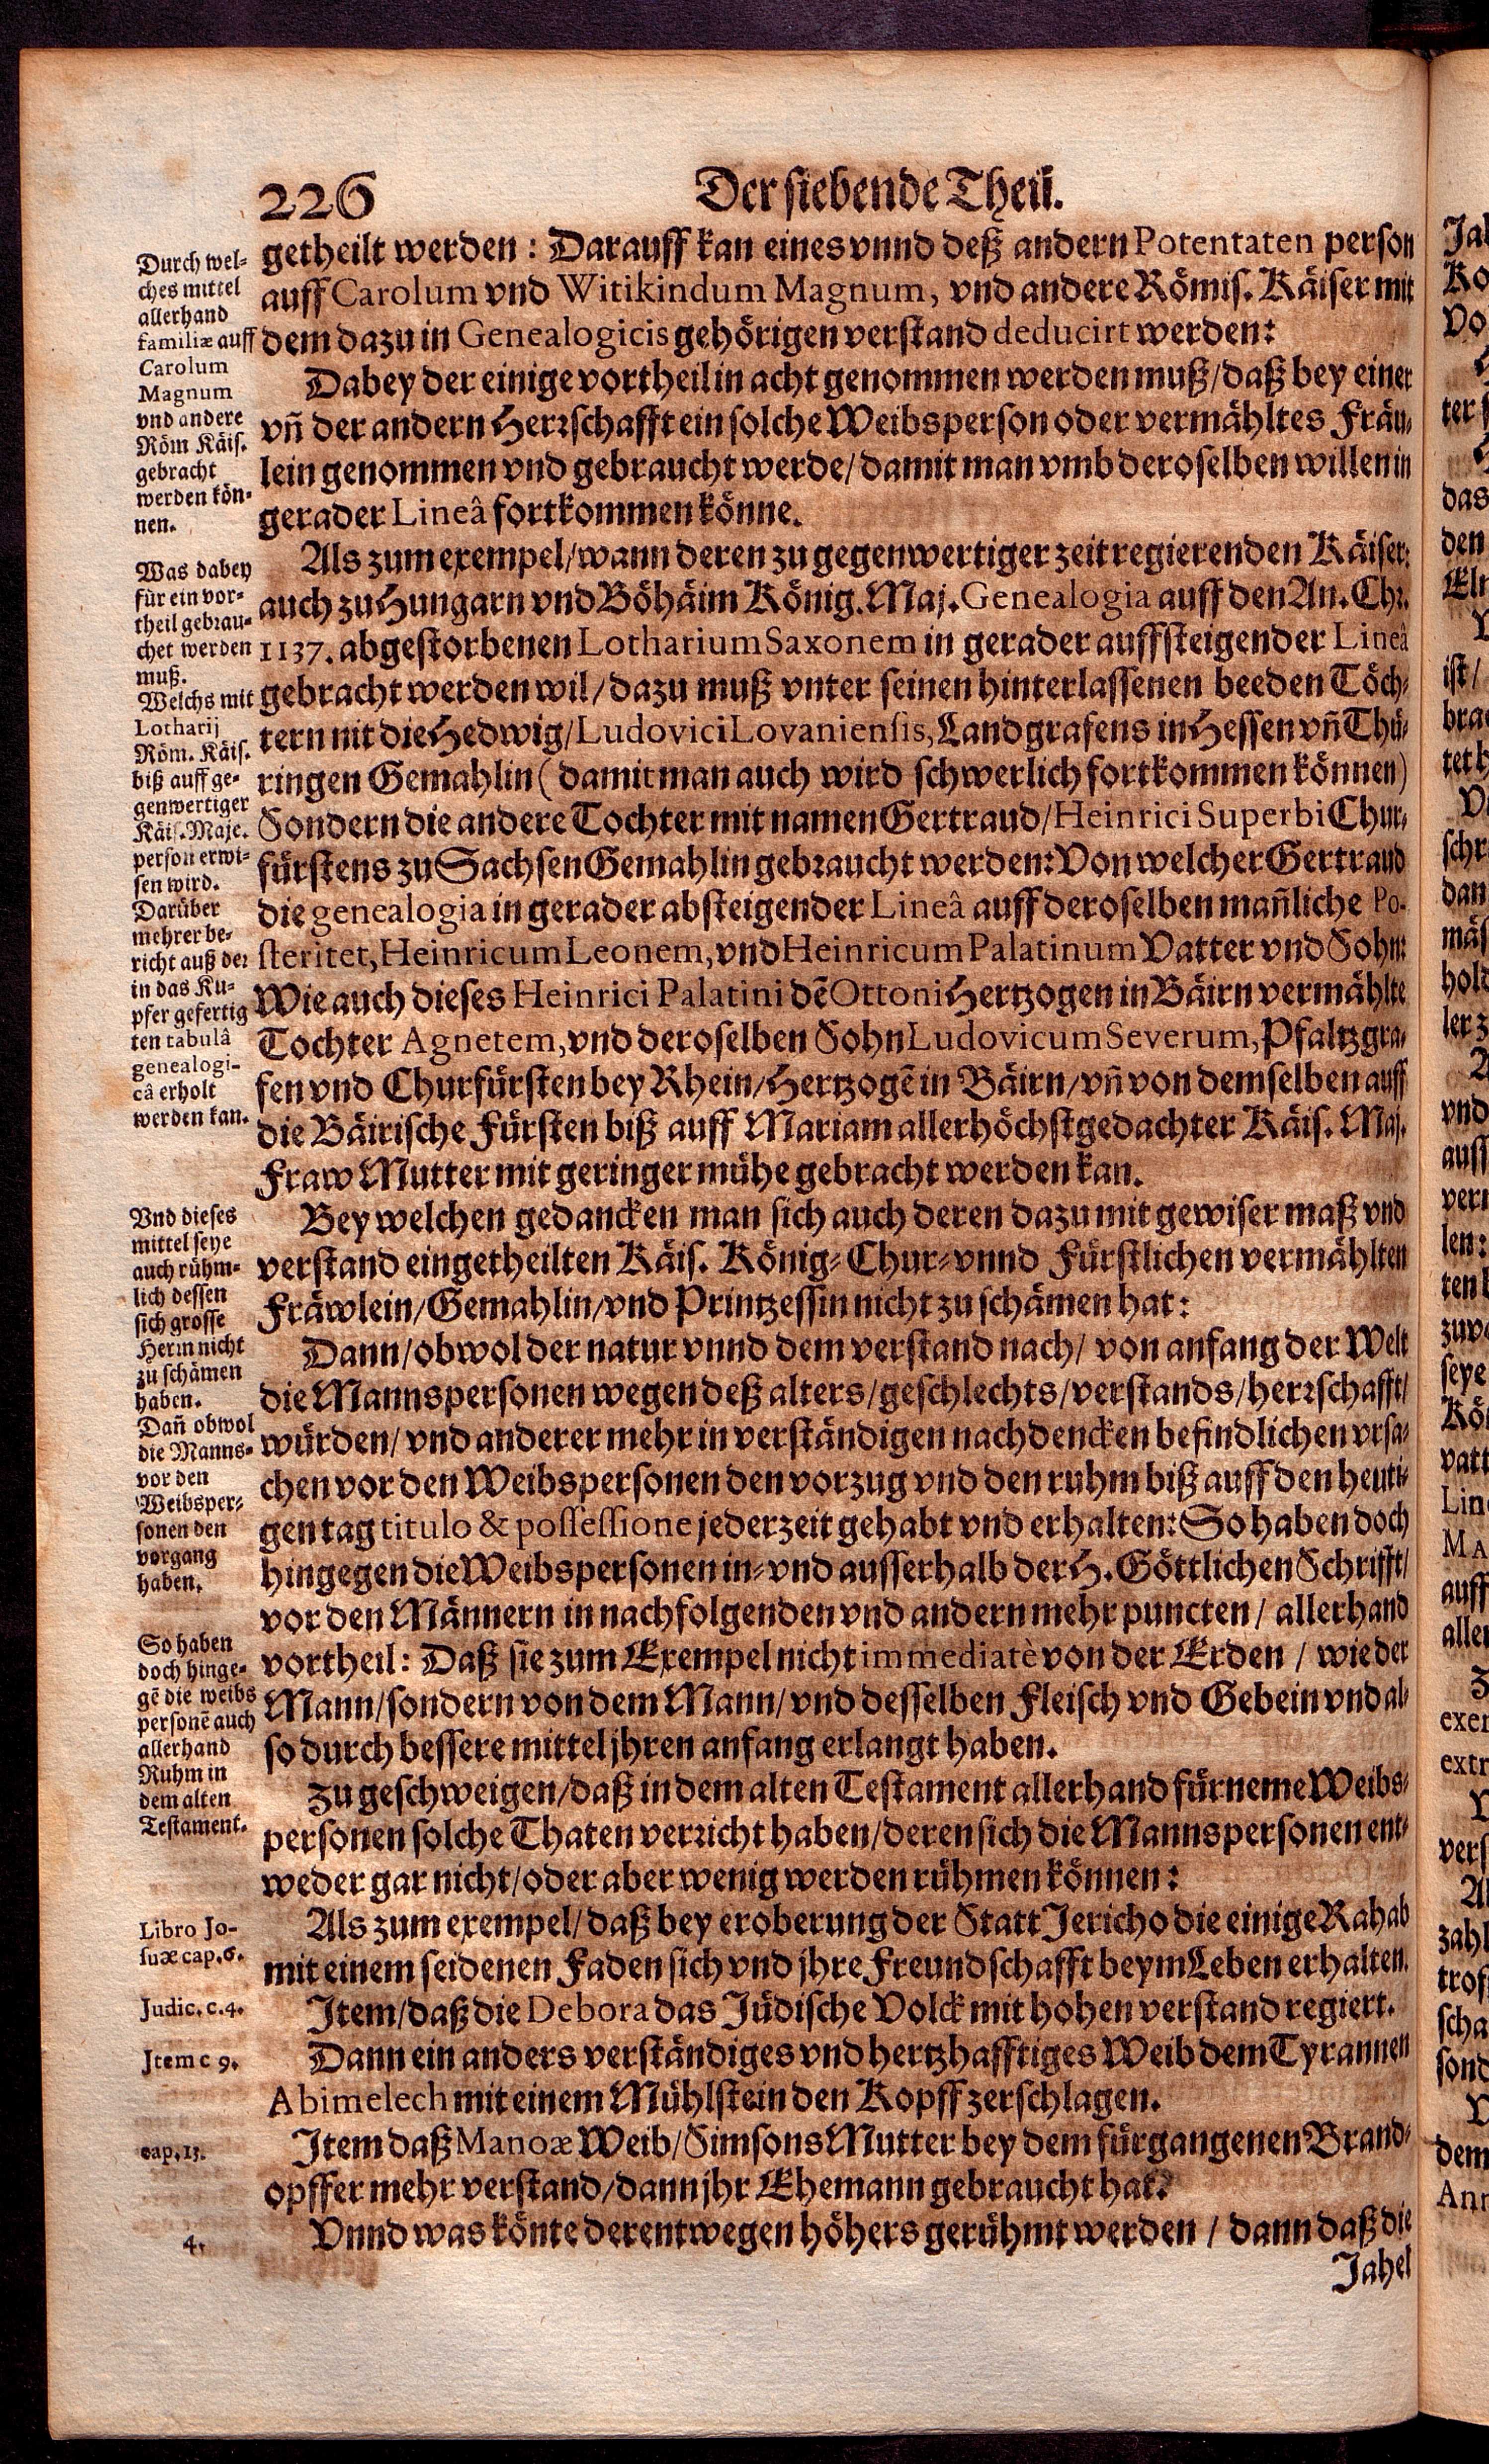 226
Der siebende Theil.
getheilt werden: Darauff kan eines vnnd deß andern Potentaten person
auff Carolum vnd Witikindum Magnum, vnd andere Römis. Käiser mit
dem dazu in Genealogicis gehörigen verstand deducirt werden:
Dabey der einige vortheil in acht genommen werden muß/daß bey einer
vñ der andern Herrschafft ein solche Weibsperson oder vermähltes Fräu-
lein genommen vnd gebraucht werde/damit man vmb deroselben willen in
gerader Lineâ fortkommen könne.
Als zum exempel/wann deren zu gegenwertiger zeit regierenden Käiser:
auch zu Hungarn vnd Böhäim König. Maj. Genealogia auff den An. Chr.
1137. abgestorbenen Lotharium Saxonem in gerader auffsteigender Lineâ
gebracht werden wil/dazu muß vnter seinen hinterlassenen beeden Töch-
tern nit die Hedwig/Ludovici Lovaniensis, Landgrafens in Hessen vñ Thü-
ringen Gemahlin (damit man auch wird schwerlich fortkommen können)
Sondern die andere Tochter mit namen Gertraud/Heinrici Superbi Chur-
fürstens zu Sachsen Gemahlin gebraucht werden: Von welcher Gertraud
die genealogia in gerader absteigender Lineâ auff deroselben mañliche Po-
steritet, Heinricum Leonem, vnd Heinricum Palatinum Vatter vnd Sohn:
Wie auch dieses Heinrici Palatini dē Ottoni Hertzogen in Bäirn vermählte
Tochter Agnetem, vnd deroselben Sohn Ludovicum Severum, Pfaltzgra-
fen vnd Churfürsten bey Rhein/Hertzogē in Bäirn/vñ von demselben auff
die Bäirische Fürsten biß auff Mariam allerhöchstgedachter Käis. Maj.
Fraw Mutter mit geringer mühe gebracht werden kan.
Bey welchen gedancken man sich auch deren dazu mit gewiser maß vnd
verstand eingetheilten Käis. König-Chur-vnnd Fürstlichen vermählten
Fräwlein/Gemahlin/vnd Printzessin nicht zu schämen hat:
Dann/obwol der natur vnnd dem verstand nach/ von anfang der Welt
die Mannspersonen wegen deß alters/geschlechts/verstands/herrschafft/
würden/vnd anderer mehr in verständigen nachdencken befindlichen vrsa-
chen vor den Weibspersonen den vorzug vnd den ruhm biß auff den heuti-
gen tag titulo & possessione jederzeit gehabt vnd erhalten: So haben doch
hingegen die Weibspersonen in-vnd ausserhalb der H. Göttlichen Schrifft/
vor den Männern in nachfolgenden vnd andern mehr puncten/ allerhand
vortheil: Daß sie zum Exempel nicht immediatè von der Erden / wie der
Mann/sondern von dem Mann/vnd desselben Fleisch vnd Gebein vnd al-
so durch bessere mittel jhren anfang erlangt haben.
Zu geschweigen/daß in dem alten Testament allerhand fürneme Weibs-
personen solche Thaten verricht haben/deren sich die Mannspersonen ent-
weder gar nicht/oder aber wenig werden rühmen können:
Als zum exempel/daß bey eroberung der Statt Jericho die einige Rahab
mit einem seidenen Faden sich vnd jhre Freundschafft beym Leben erhalten.
Item/daß die Debora das Jüdische Volck mit hohen verstand regiert.
Dann ein anders verständiges vnd hertzhafftiges Weib dem Tyrannen
Abimelech mit einem Mühlstein den Kopff zerschlagen.
Item daß Manoæ Weib/Simsons Mutter bey dem fürgangenen Brand-
opffer mehr verstand/dann jhr Ehemann gebraucht hat.
Vnnd was könte derentwegen höhers gerühmt werden / dann daß die
Jahel
Durch wel-
ches mittel
allerhand
familiæ auff
Carolum
Magnum
vnd andere
Röm Käis.
gebracht
werden kön-
nen.
Was dabey
für ein vor-
theil gebrau-
chet werden
muß.
Welchs mit
Lotharij
Röm. Käis.
biß auff ge-
genwertiger
Käis. Maje.
person erwi-
sen wird.
Darüber
mehrer be-
richt auß der
in das Ku-
pfer gefertig
ten tabulâ
genealogi-
câ erholt
werden kan.
Vnd dieses
mittel seye
auch rühm-
lich dessen
sich grosse
Herrn nicht
zu schämen
haben.
Dañ obwol
die Manns-
vor den
Weibsper-
sonen den
vorgang
haben.
So haben
doch hinge-
gē die weibs
personē auch
allerhand
Ruhm in
dem alten
Testament.
Libro Jo-
suæ cap. 6.
Judic. c. 4.
Item c 9.
cap. 13.
4.